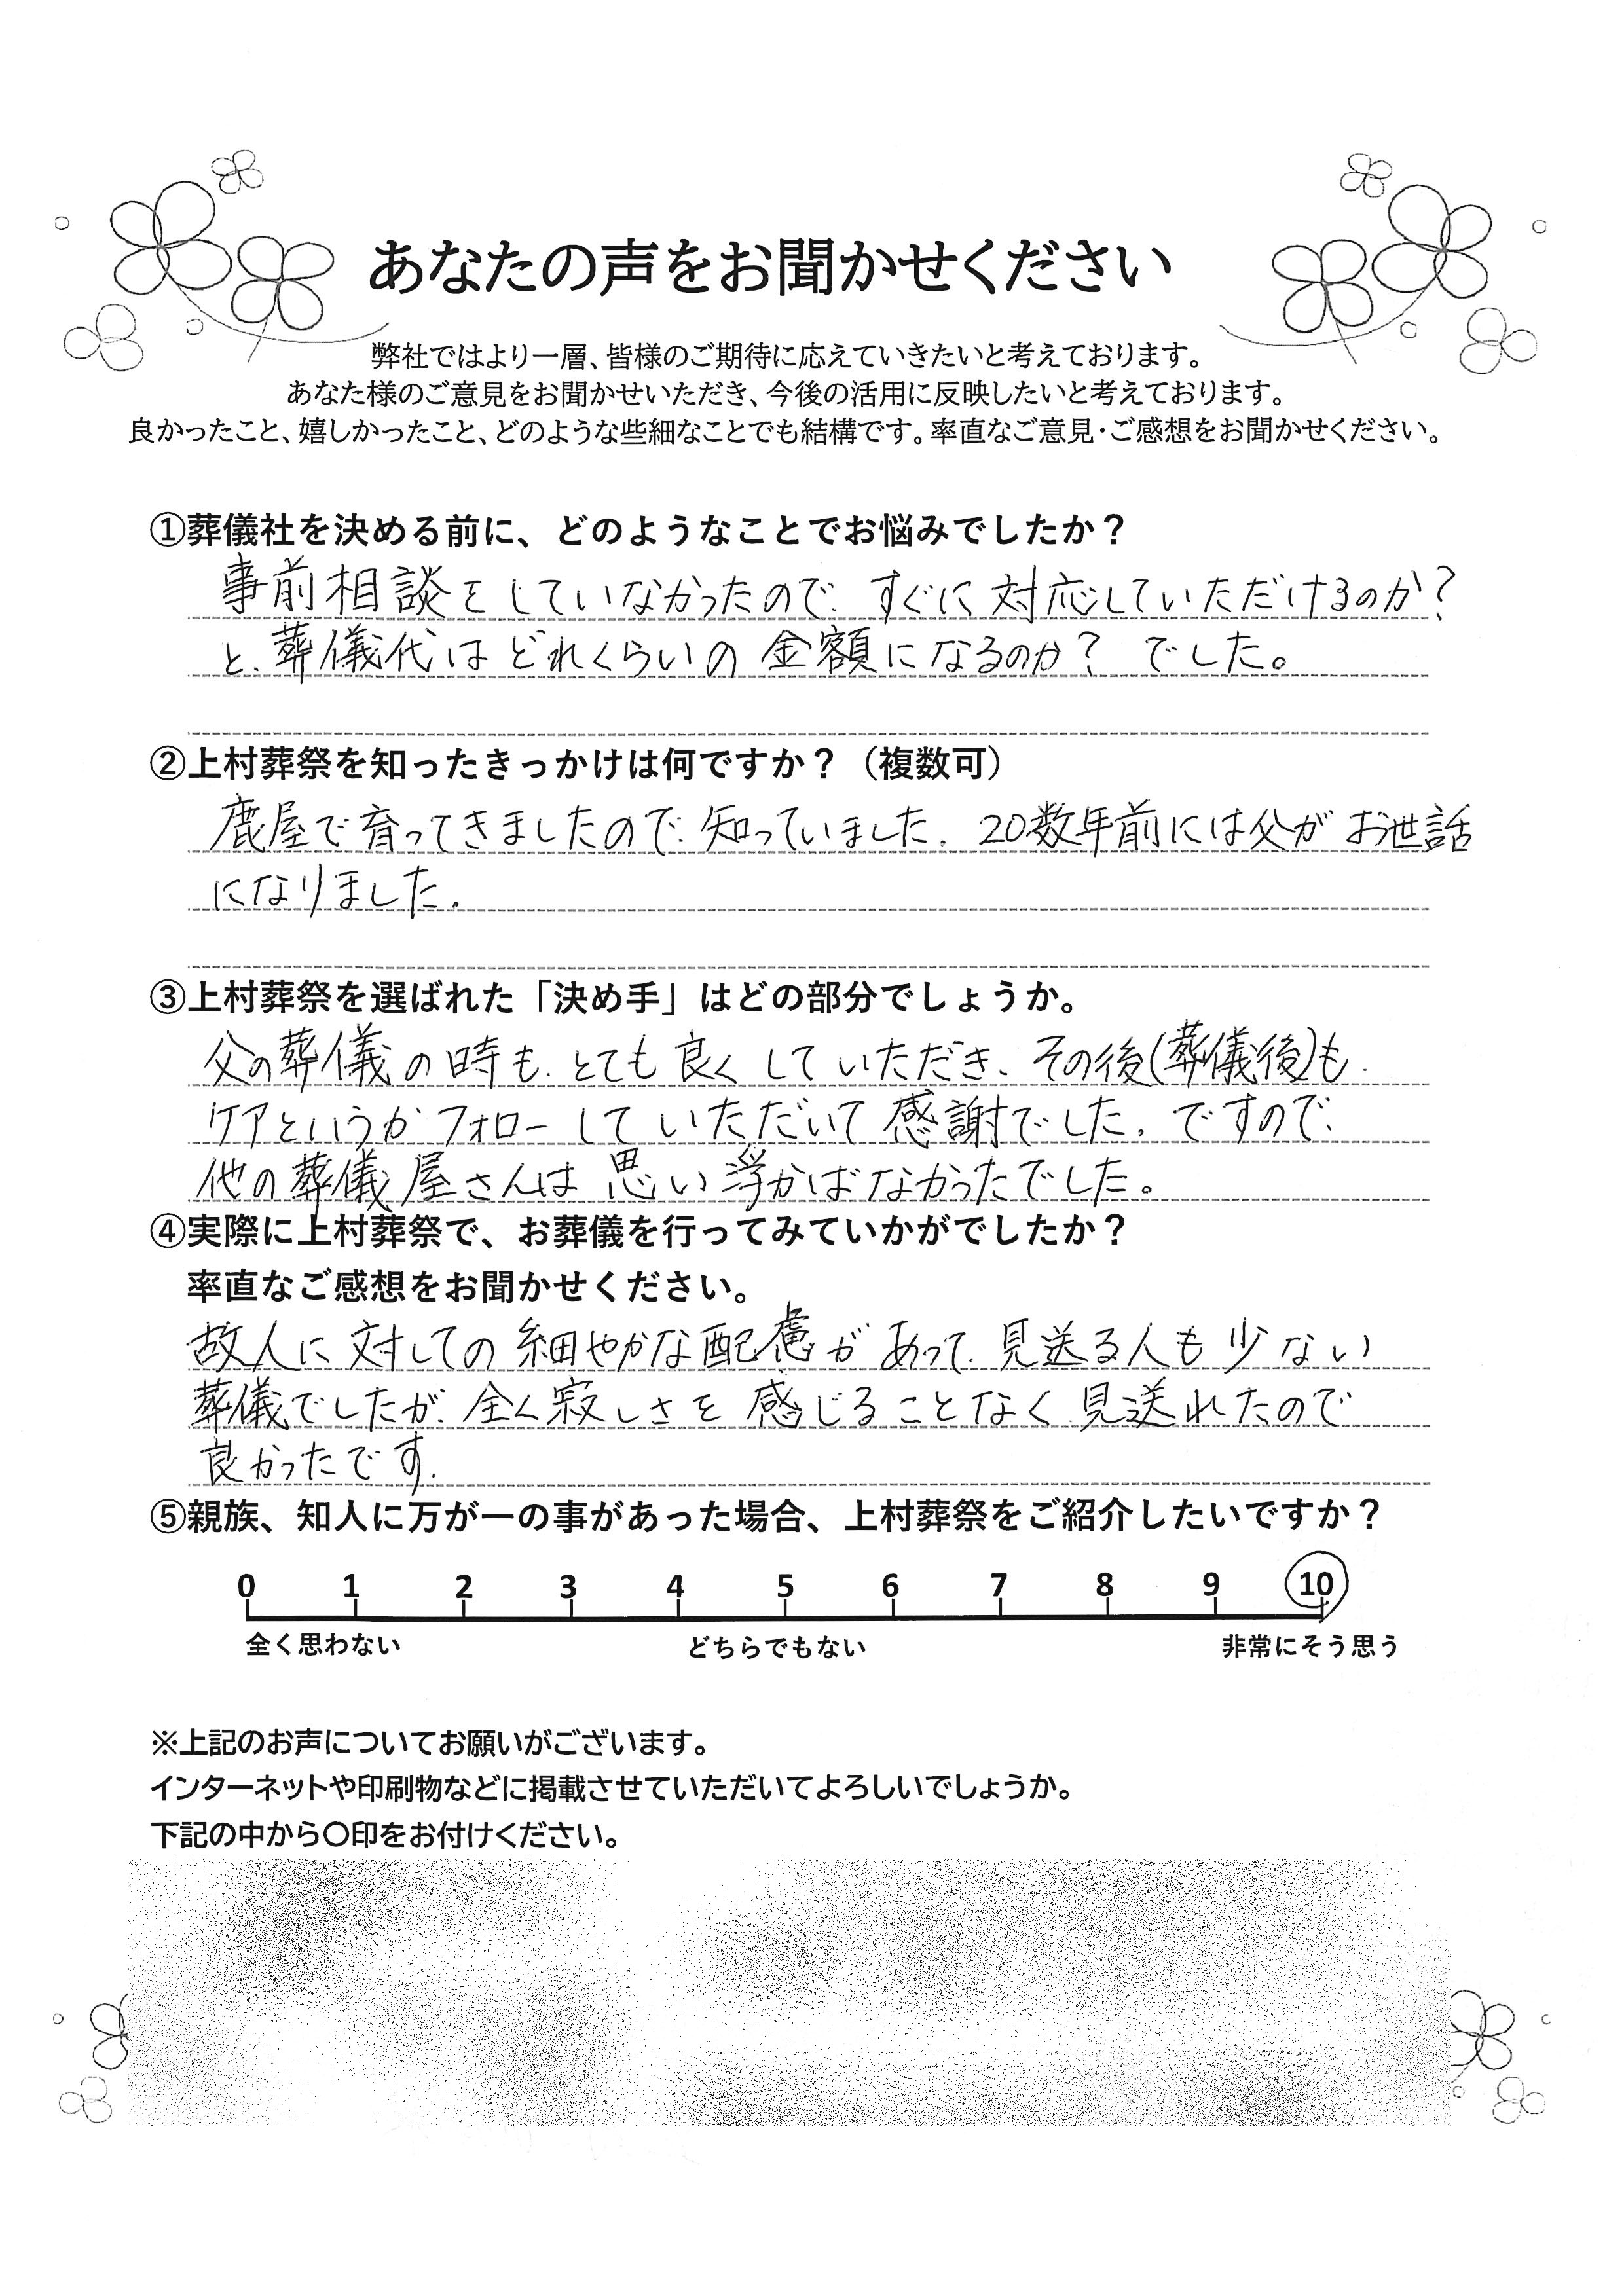 あなたの声をお聞かせください
弊社ではより一層、皆様のご期待に応えていきたいと考えております。
あなた様のご意見をお聞かせいただき、今後の活用に反映したいと考えております。
良かったこと、嬉しかったこと、どのような些細なことでも結構です。率直なご意見・ご感想をお聞かせください。
①葬儀社を決める前に、どのようなことでお悩みでしたか？
事前相談をしていなかったので、すぐに対応していただけるのか？
と、葬儀代はどれくらいの金額になるのか？ でした。
②上村葬祭を知ったきっかけは何ですか？（複数可）
鹿屋で育ってきましたので、知っていました。20数年前には父がお世話
になりました。
③上村葬祭を選ばれた「決め手」はどの部分でしょうか。
父の葬儀の時も、とても良くしていただき、その後(葬儀後)も、
ケアというかフォローしていただいて感謝でした。ですので、
他の葬儀屋さんは思い浮かばなかったでした。
④実際に上村葬祭で、お葬儀を行ってみていかがでしたか？
率直なご感想をお聞かせください。
故人に対しての細やかな配慮があって、見送る人も少ない
葬儀でしたが、全く寂しさを感じることなく見送れたので
良かったです。
⑤親族、知人に万が一の事があった場合、上村葬祭をご紹介したいですか？
0 1 2 3 4 5 6 7 8 9 10
全く思わない どちらでもない 非常にそう思う
※上記のお声についてお願いがございます。
インターネットや印刷物などに掲載させていただいてよろしいでしょうか。
下記の中から〇印をお付けください。